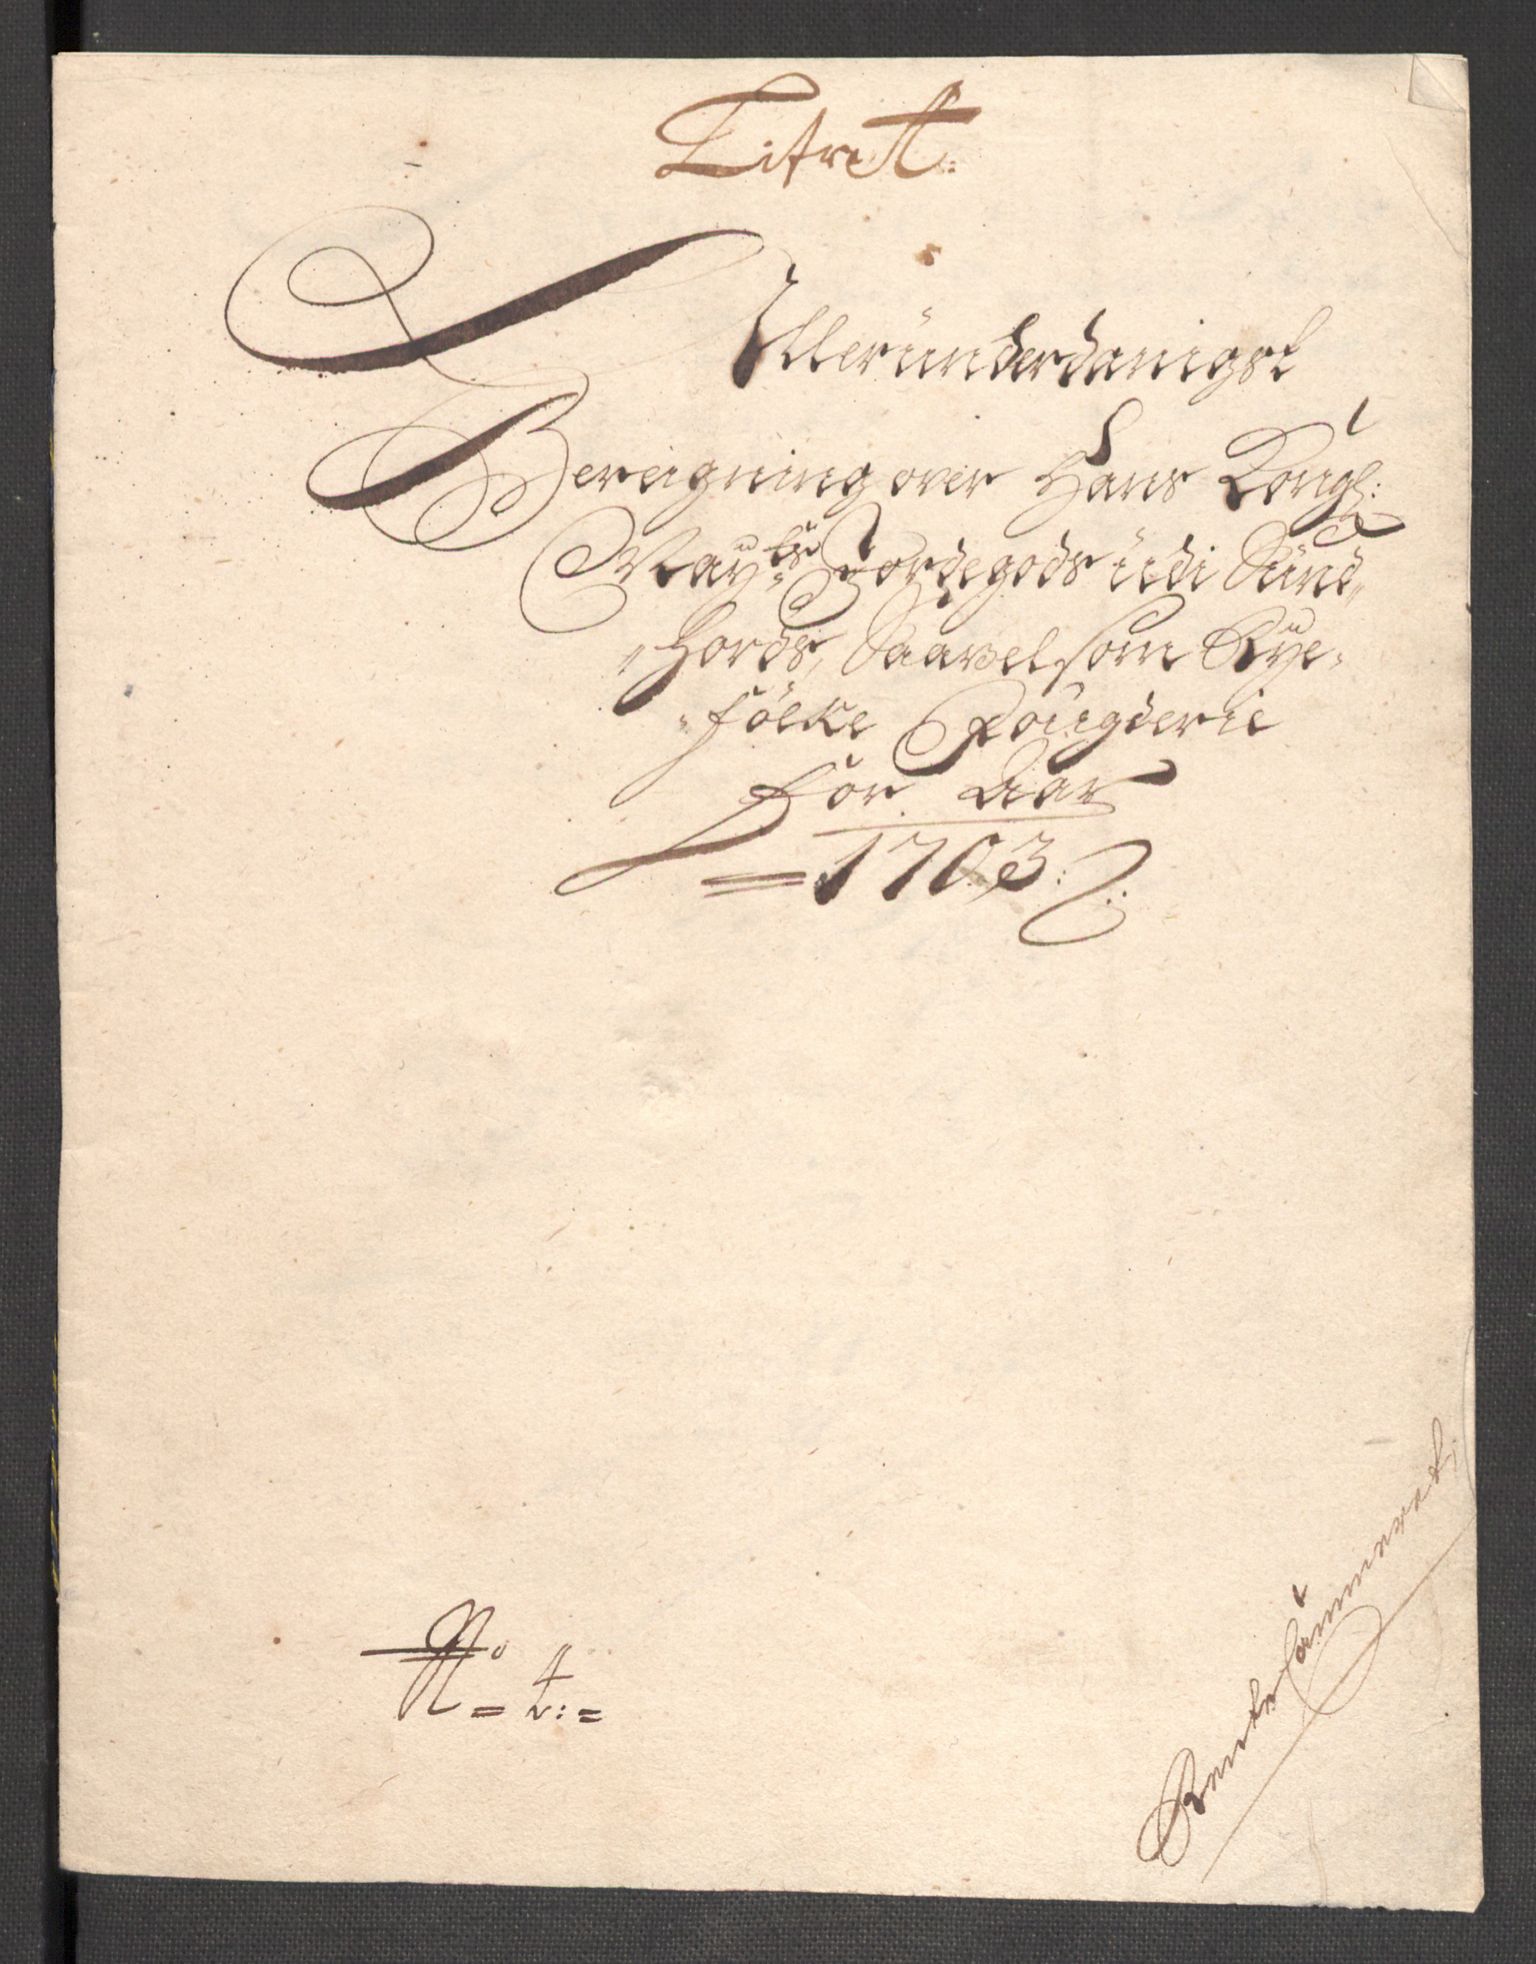 Litra A:
Alleründerdanigst
Bereigning over Hans Kongl:
Mayts: Jordegods udi Sünd„
„Hords, Saavelsom Rye„
„fölke Fougderie
for Aar
1703:
No 4:
Rentekammeret;